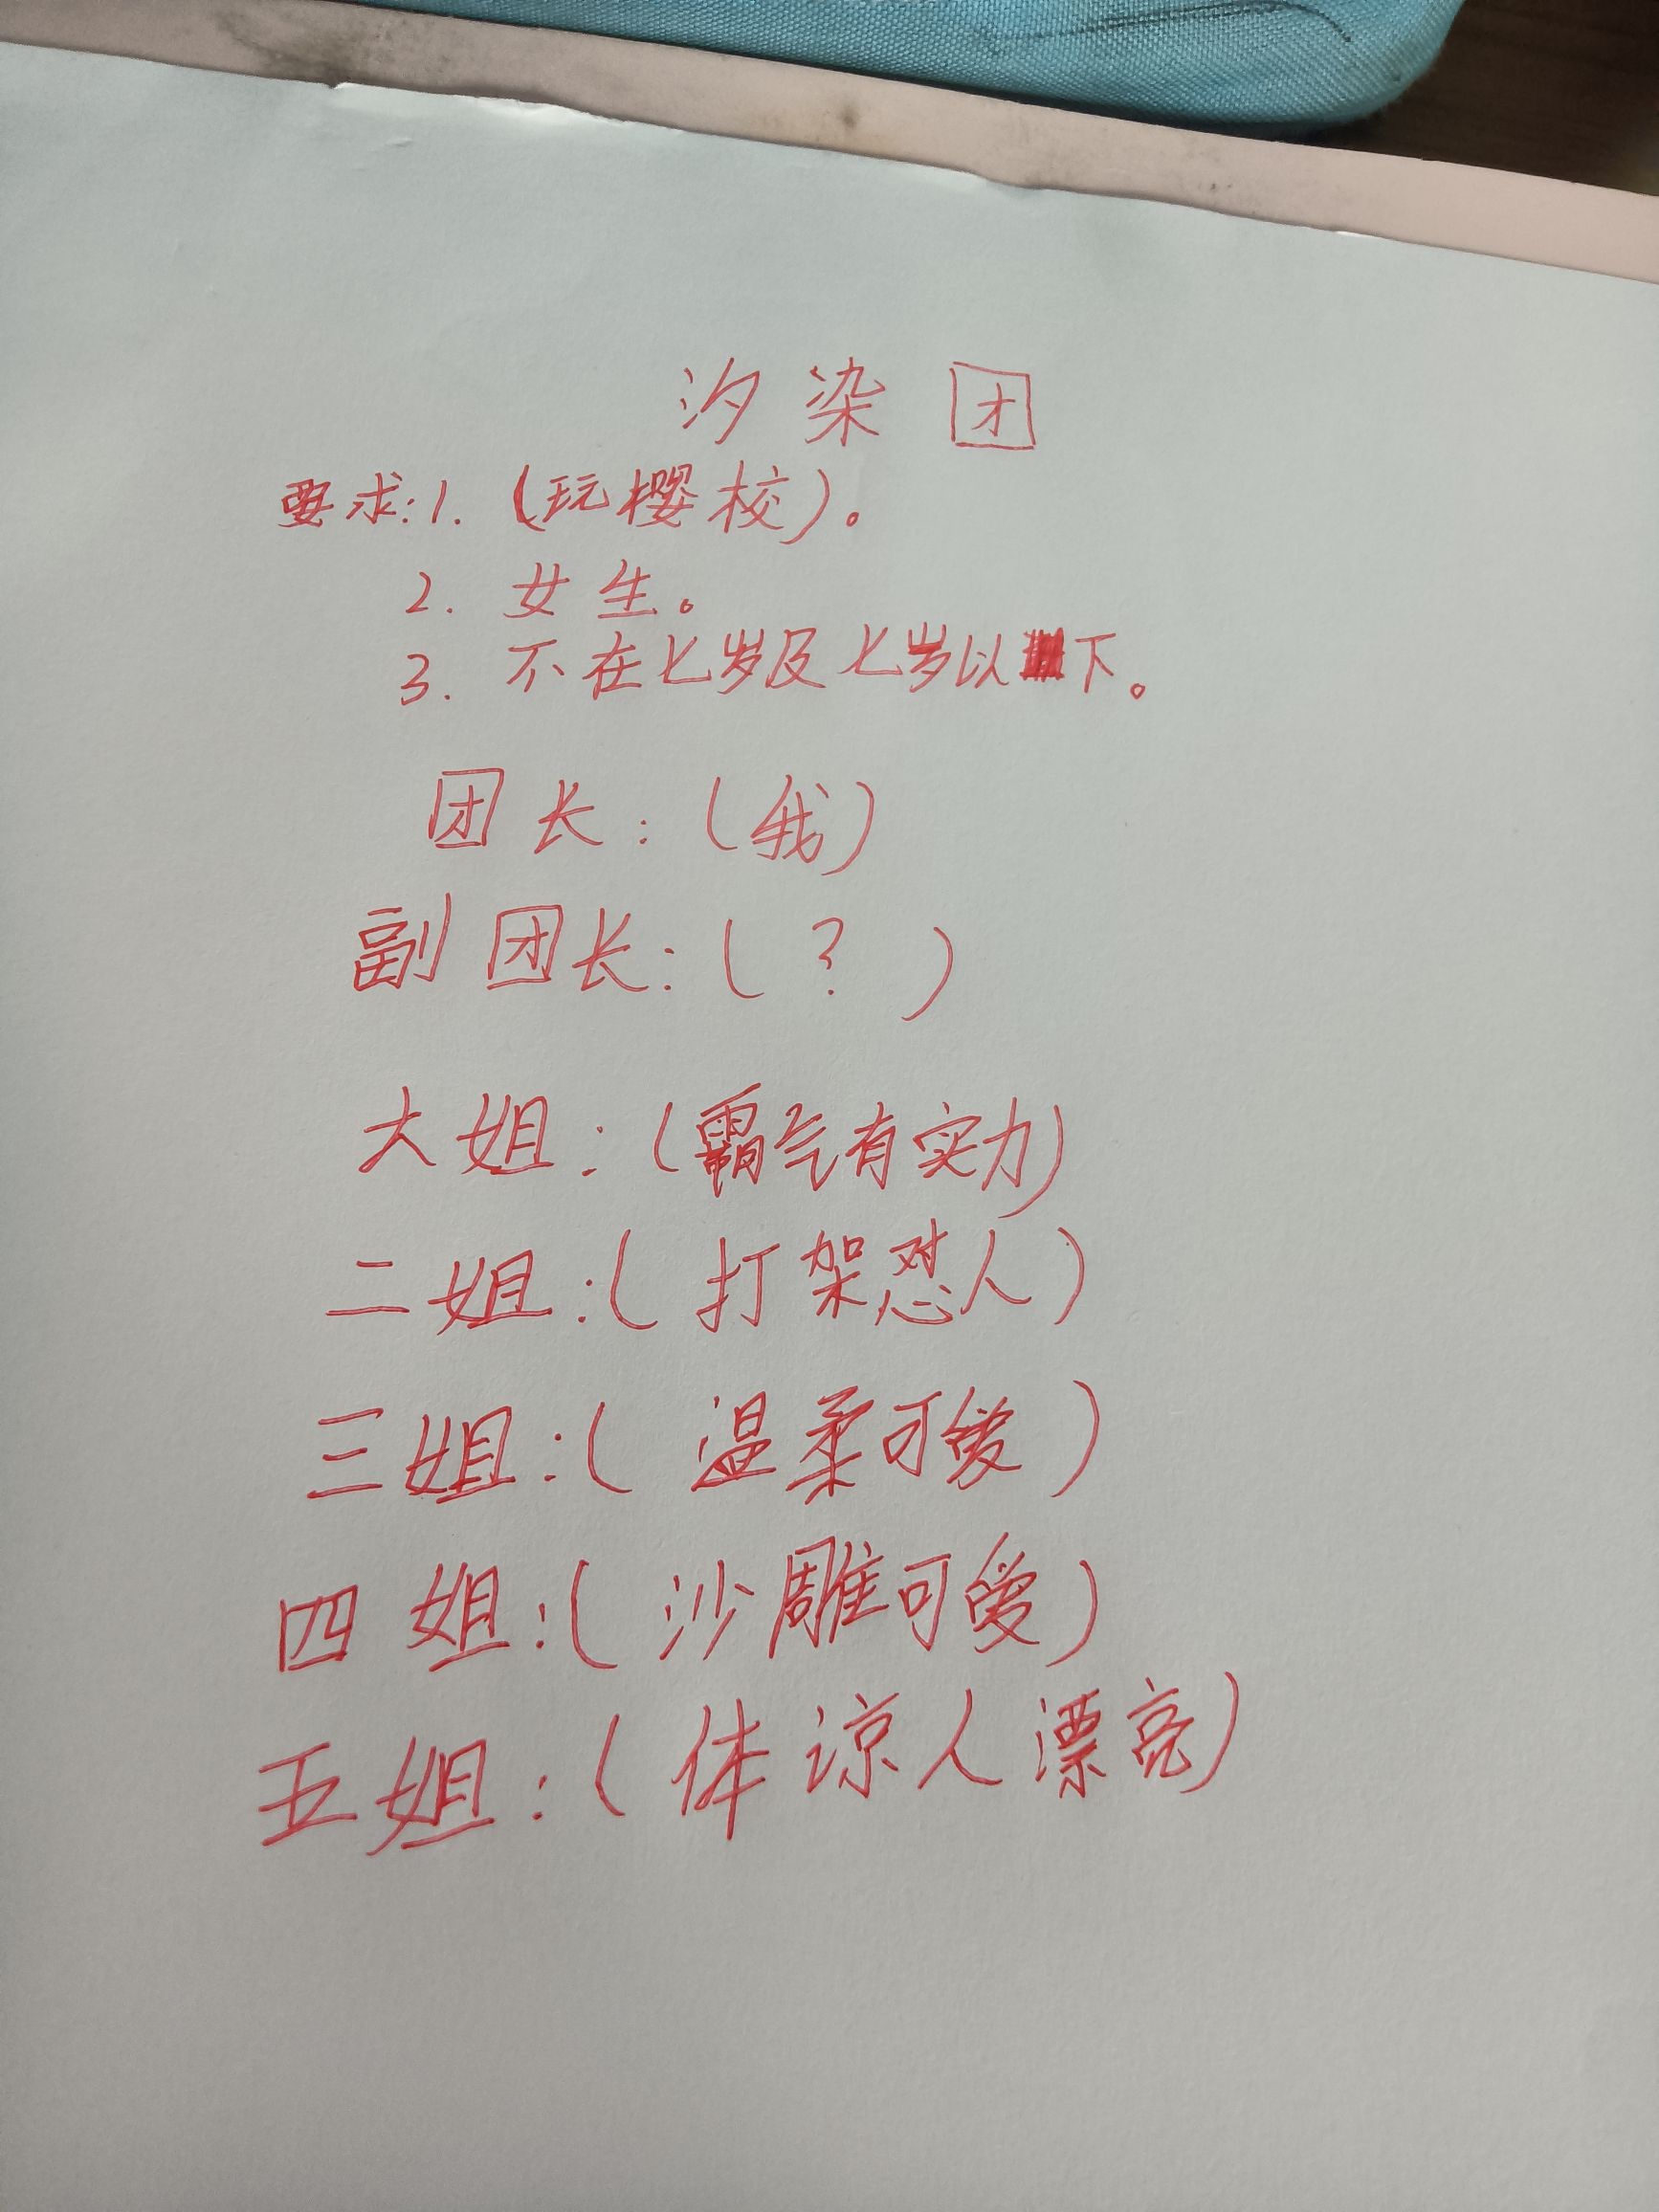 汐染团
要求:1.(玩樱校)。
2.女生。
3.不在七岁及七岁以下。
团长:(我)
副团长:(?)
大姐:(霸气有实力)
二姐:(打架怼人)
三姐:(温柔可爱)
四姐:(沙雕可爱)
五姐:(体谅人漂亮)